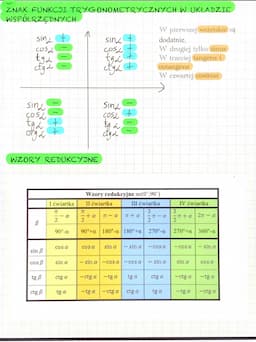 ZNAK FUNKCJI TRYGONOMETRYCZNYCH W UKŁADZIE
WSPÓŁRZĘDNYCH
sin α +
cos α -
tg α -
ctg α -
sin α +
cos α +
tg α +
ctg α +
W pierwszej wszystkie są
dodatnie.
W drugiej tylko sinus
W trzeciej tangens i
cotangens
W czwartej cosinus
sin α -
cos α -
tg α +
ctg α +
sin α -
cos α +
tg α -
ctg α -
WZORY REDUKCYJNE
Wzory redukcyjne
I ćwiartka II ćwiartka III ćwiartka IV ćwiartka
β π/2 - α π/2 + α π - α π + α 3/2 π - α 3/2 π + α 2π - α
90°-α 90°+α 180°-α 180°+α 270°-α 270°+α 360°-α
sin β cos α cos α sin α -sin α -cos α -cos α -sin α
cos β sin α -sin α -cos α -cos α -sin α sin α cos α
tg β ctg α -ctg α -tg α tg α ctg α -ctg α -tg α
ctg β tg α -tg α -ctg α ctg α tg α -tg α -ctg α